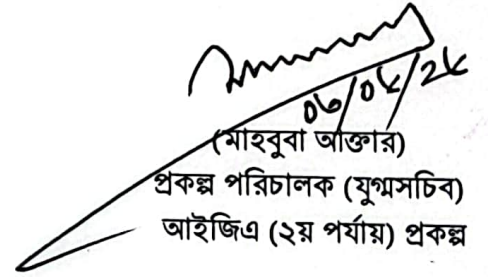 (মাহবুবা আক্তার)
প্রকল্প পরিচালক (যুগ্মসচিব)
আইজিএ (২য় পর্যায়) প্রকল্প